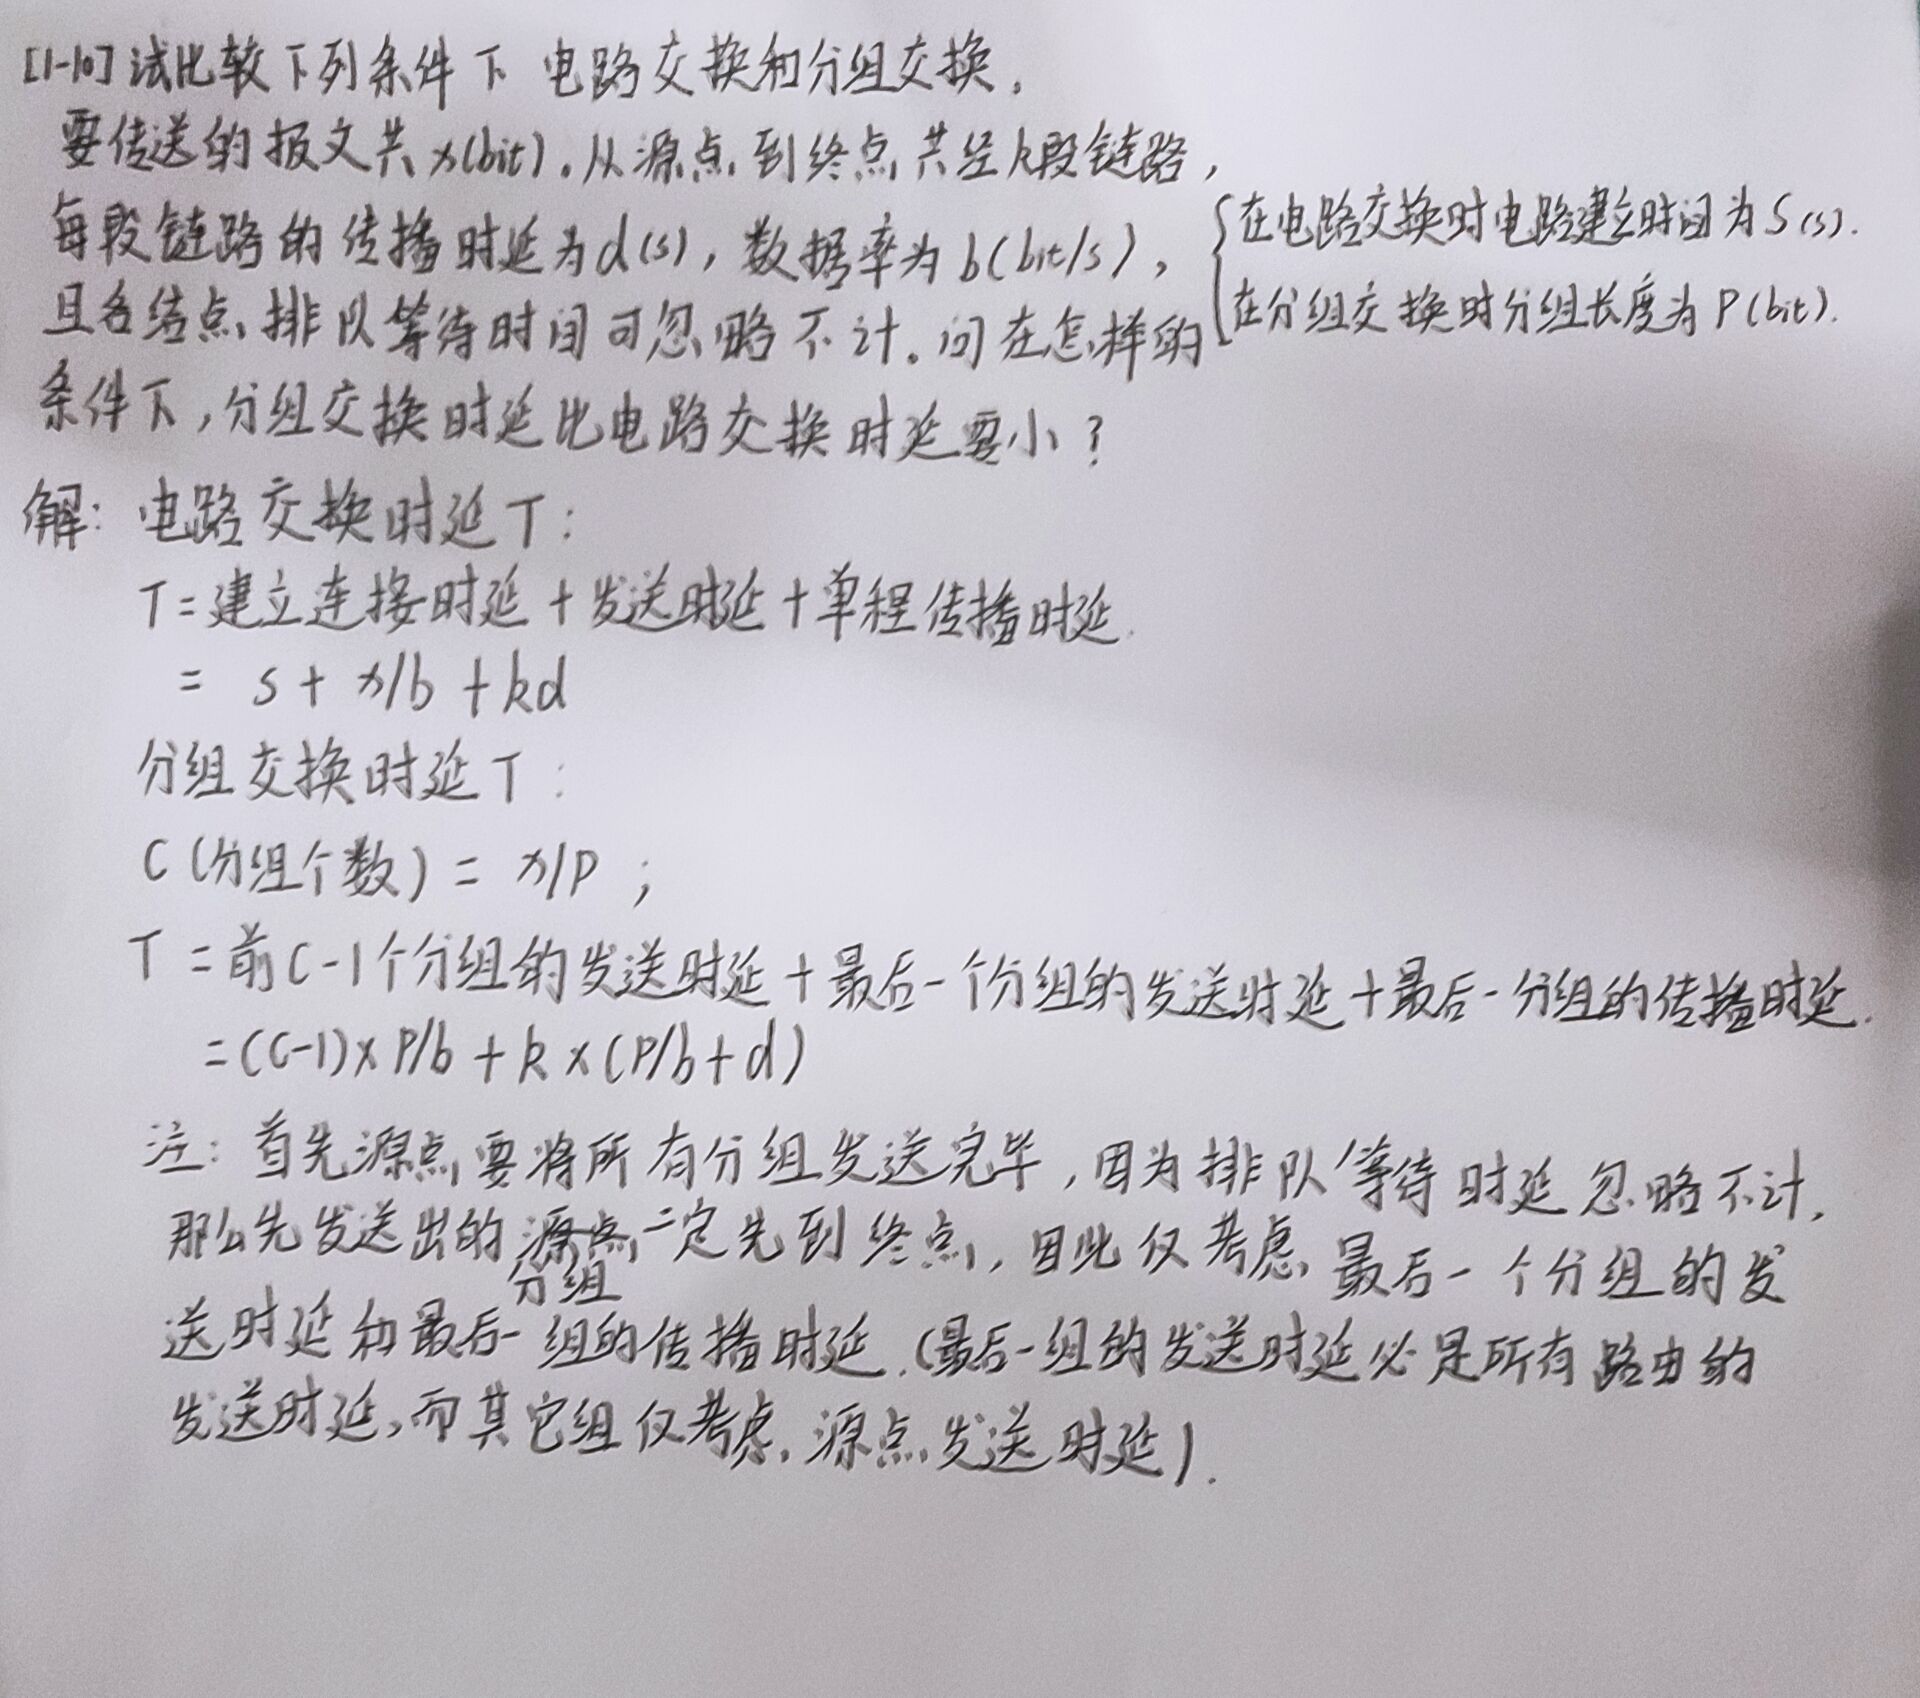 [1-10] 试比较下列条件下 电路交换和分组交换.
要传送的报文共x(bit).从源点到终点共经k段链路,
每段链路的传播时延为d(s),数据率为b(bit/s),
{在电路交换时电路建立时间为S(s).
在分组交换时分组长度为P(bit).
且各结点排队等待时间可忽略不计.问在怎样的
条件下,分组交换时延比电路交换时延要小?
解: 电路交换时延T:
T=建立连接时延+发送时延+单程传播时延.
= s + x/b + kd
分组交换时延T:
C(分组个数) = x/P ;
T =前C-1个分组的发送时延+最后一个分组的发送时延+最后一分组的传播时延.
=(C-1)x P/b + k x (P/b + d)
注: 首先源点要将所有分组发送完毕,因为排队等待时延忽略不计,
那么先发送出的分组一定先到终点,因此仅考虑最后一个分组的发
送时延和最后一组的传播时延.(最后一组的发送时延必是所有路由的
发送时延,而其它组仅考虑源点发送时延).